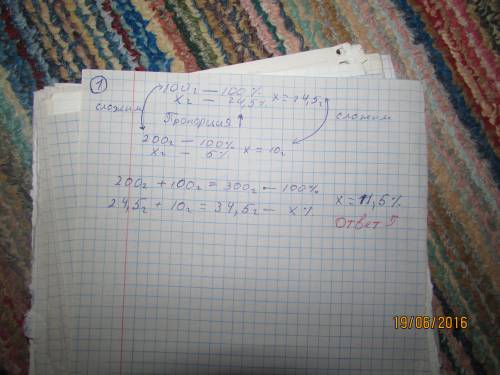 1
100г — 100%
xг — 24,5% x = 24,5г
сложим
Пропорция ↑
сложим
200г — 100%
xг — 5% x = 10г
200г + 100г = 300г — 100%
24,5г + 10г = 34,5г — x%
x = 11,5%
Ответ 5
19/06/2016